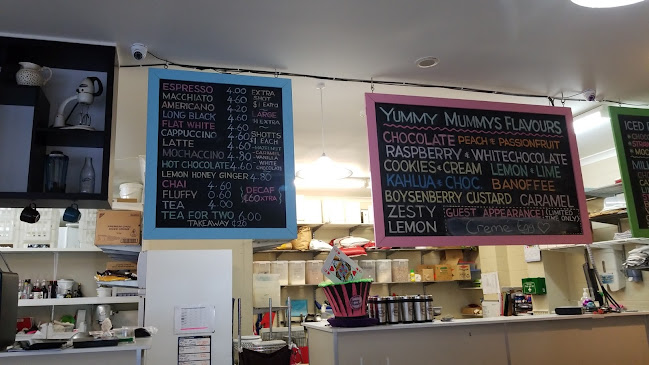 ESPRESSO 4.00
MACCHIATO 4.60
AMERICANO 4.20
LONG BLACK 4.60
FLAT WHITE 4.60
CAPPUCCINO 4.60
LATTE 4.60
MOCHACCINO 4.80
HOT CHOCOLATE 4.60
LEMON HONEY GINGER 4.80
CHAI 4.60
FLUFFY 0.60
TEA 4.00
TEA FOR TWO 6.00
TAKEAWAY
EXTRA
SHOT
$1 Extra
LARGE
SHOTTS
$1 EACH
HAZELNUT
CARAMEL
VANILLA
WHITE
CHOCOLATE
DECAF
EXTRA
YUMMY MUMMYS FLAVOURS
CHOCOLATE PEACH & PASSIONFRUIT
RASPBERRY & WHITECHOCOLATE
COOKIES & CREAM LEMON & LIME
KAHLUA & CHOC. BANOFFEE
BOYSENBERRY CUSTARD CARAMEL
ZESTY GUEST APPEARANCE! (LIMITED
TIME ONLY)
LEMON Creme Egg
ICED